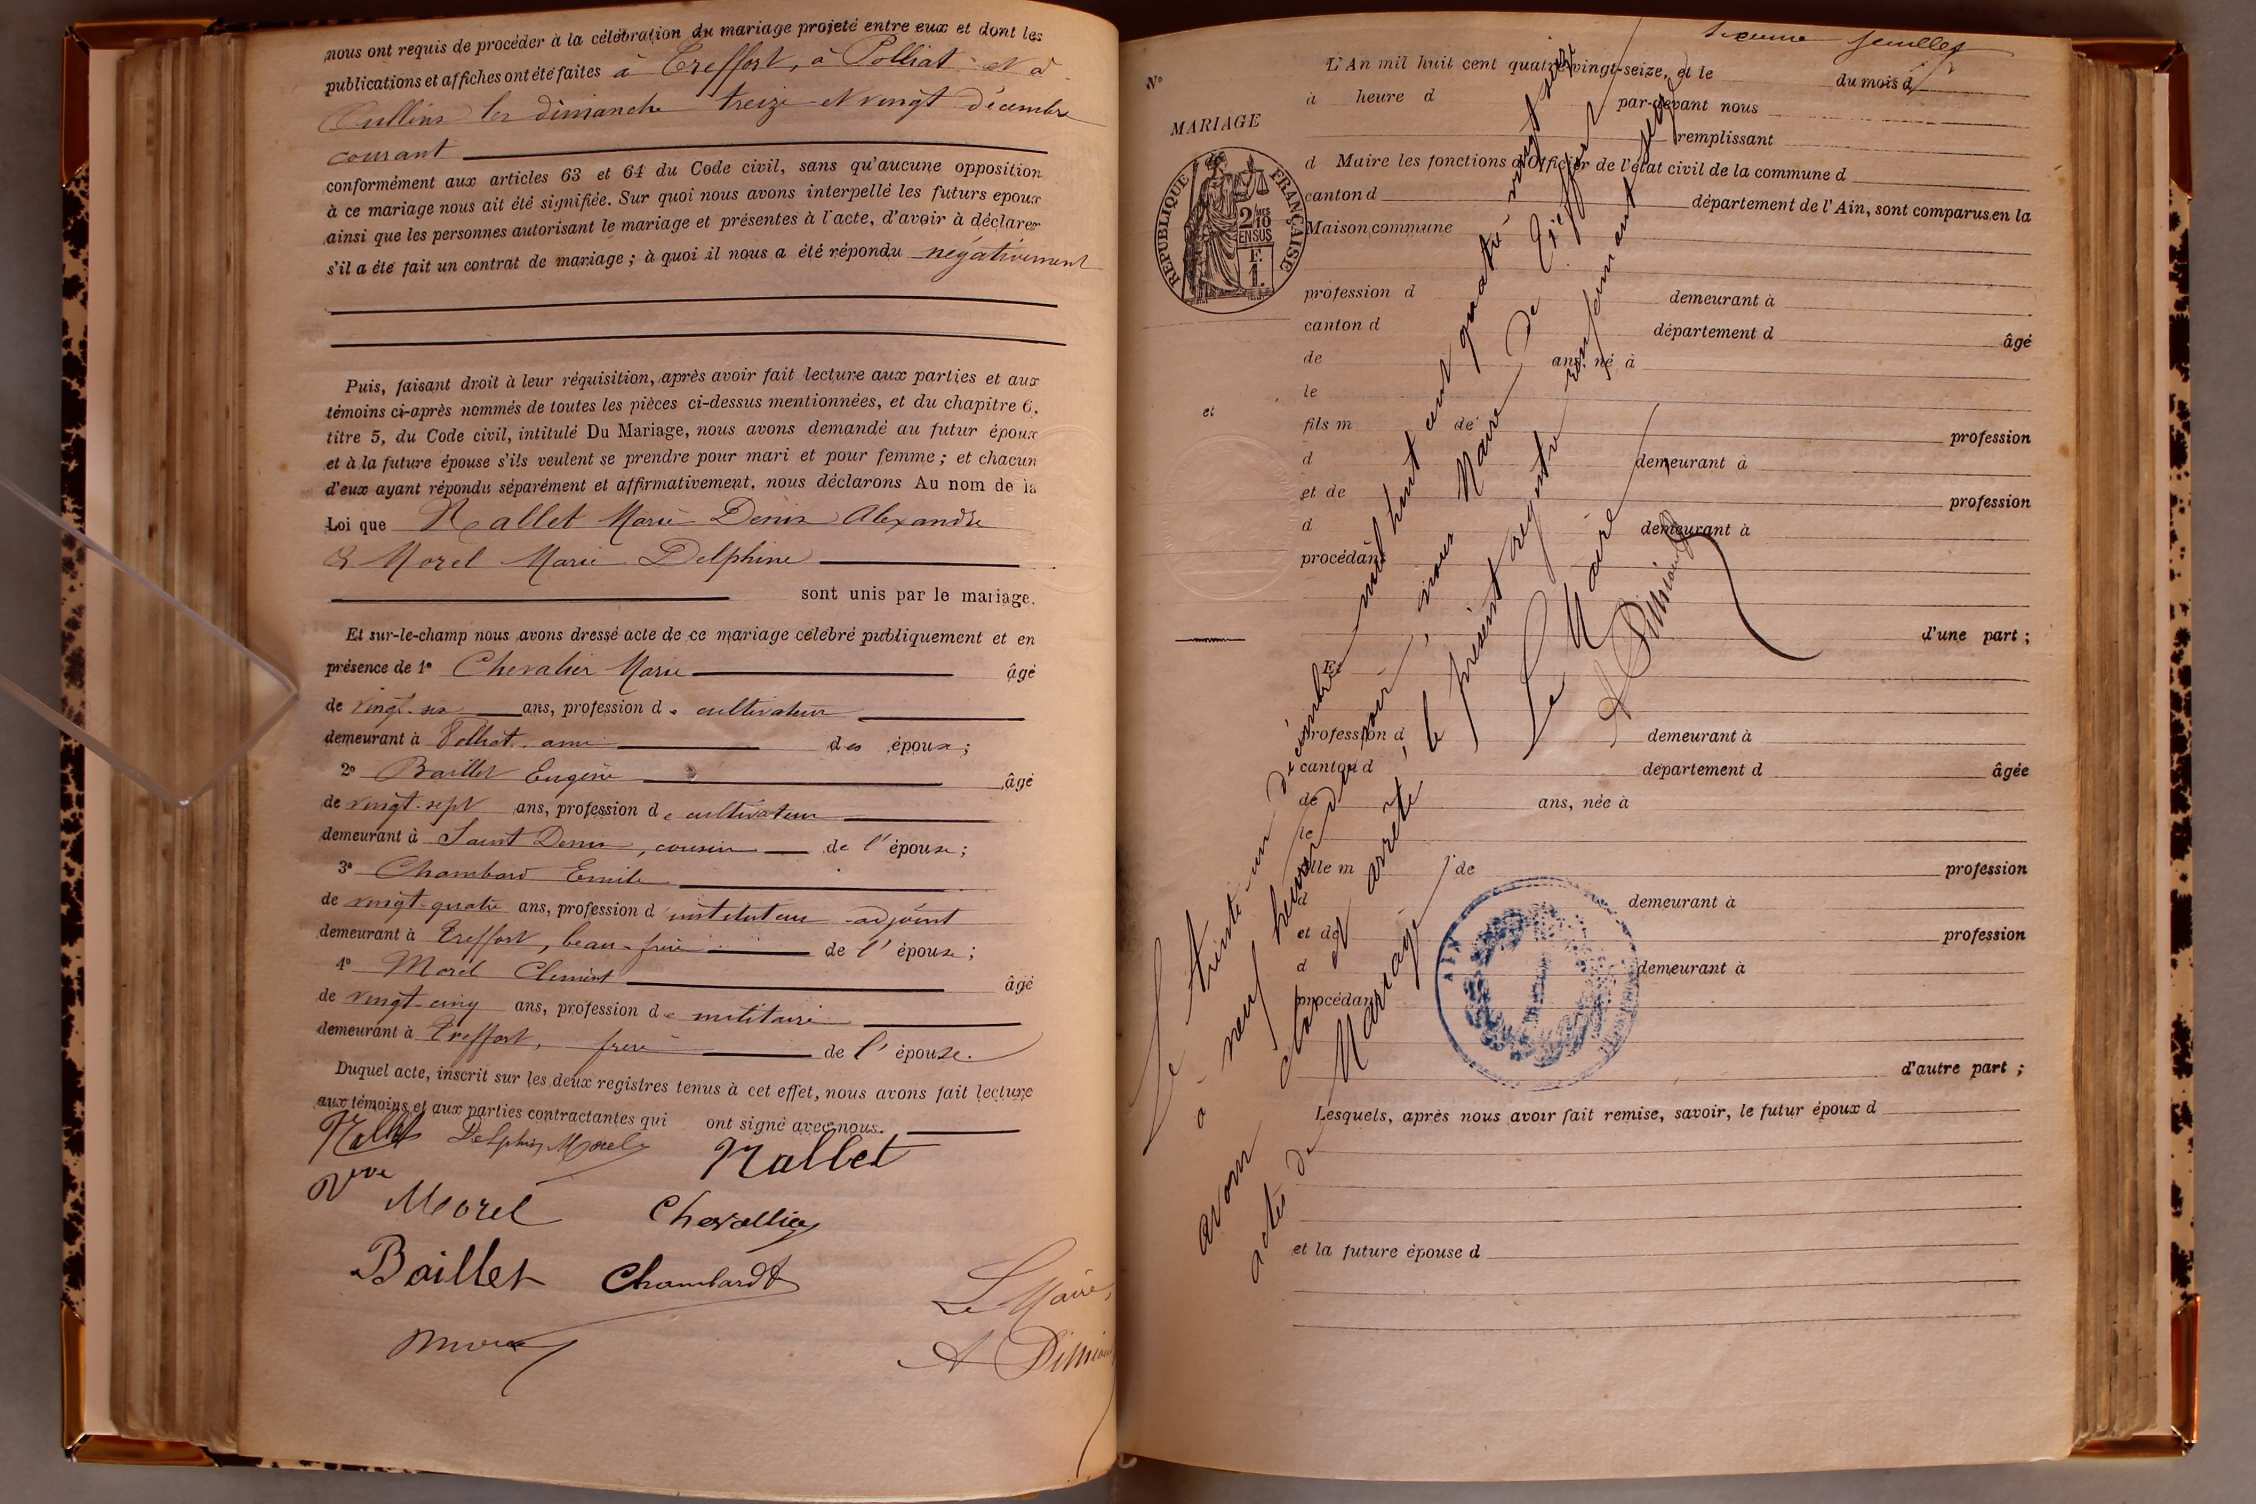 nous ont requis de procéder à la célébration du mariage projeté entre eux et dont les
publications et affiches ont été faites à Treffort, à Polliat et à
Cullins les dimanche treize et vingt décembre
courant
conformément aux articles 63 et 64 du Code civil, sans qu'aucune opposition
à ce mariage nous ait été signifiée. Sur quoi nous avons interpellé les futurs epoux
ainsi que les personnes autorisant le mariage et présentes à l'acte, d'avoir à déclarer
s'il a été fait un contrat de mariage ; à quoi il nous a été répondu négativement
Puis, faisant droit à leur réquisition, après avoir fait lecture aux parties et aux
témoins ci-après nommés de toutes les pièces ci-dessus mentionnées, et du chapitre 6,
titre 5, du Code civil, intitulé Du Mariage, nous avons demandé au futur époux
et à la future épouse s'ils veulent se prendre pour mari et pour femme ; et chacun
d'eux ayant répondu séparément et affirmativement, nous déclarons Au nom de la
Loi que Nallet Marie Denis Alexandre
& Morel Marie Delphine
sont unis par le mariage.
Et sur-le-champ nous avons dressé acte de ce mariage célébré publiquement et en
présence de 1° Chevalier Marie âgé
de vingt-six ans, profession de cultivateur
demeurant à Polliat ami des époux ;
2° Baillet Eugène âgé
de vingt-sept ans, profession de cultivateur
demeurant à Saint Denis, cousin de l'épouse ;
3° Chambard Emile
de vingt-quatre ans, profession d'instituteur adjoint
demeurant à Treffort, beau-frère de l'épouse ;
4° Morel Clément âgé
de vingt-cinq ans, profession de militaire
demeurant à Treffort, frère de l'épouse.
Duquel acte, inscrit sur les deux registres tenus à cet effet, nous avons fait lecture
aux témoins et aux parties contractantes qui ont signé avec nous.
Nallet Delphine Morel Nallet
Vve Morel Chevallier
Baillet Chambard
Morel
Le Maire,
A
feuillet
N°
MARIAGE
RÉPUBLIQUE FRANÇAISE
2/10 EN SUS
F. 1.
et
L'An mil huit cent quatre-vingt-seize, et le du mois d
à heure d par-devant nous
remplissant
d Maire les fonctions d'Officier de l'état civil de la commune d
canton d département de l'Ain, sont comparus en la
Maison commune
profession d demeurant à
canton d département d âgé
de ans, né à
le
fils m de profession
d demeurant à
et de profession
d demeurant à
procédant
d'une part ;
Et
profession d demeurant à
canton d département d âgée
de ans, née à
le
fille m de profession
d demeurant à
et de profession
d demeurant à
procédant
d'autre part ;
Lesquels, après nous avoir fait remise, savoir, le futur époux d
et la future épouse d
Le trente-un décembre mil huit cent quatre-vingt seize
à neuf heures du soir, nous Maire de Treffort
avons clos et arrêté, le présent registre renfermant seize
actes de Mariage
Le Maire
A
AIN